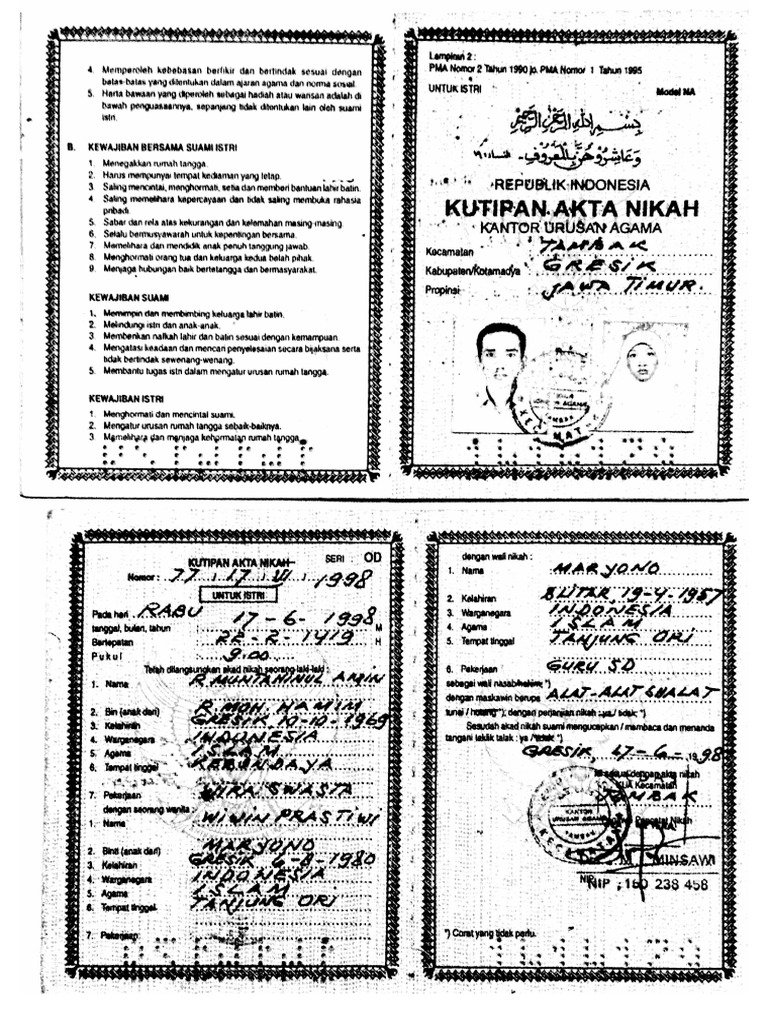 4. Memperoleh kebebasan berfikir dan bertindak sesuai dengan
batas-batas yang ditentukan dalam ajaran agama dan norma sosial.
5. Harta bawaan yang diperoleh sebagai hadiah atau warisan adalah di
bawah penguasaannya, sepanjang tidak ditentukan lain oleh suami
istri.
B. KEWAJIBAN BERSAMA SUAMI ISTRI
1. Menegakkan rumah tangga.
2. Harus mempunyai tempat kediaman yang tetap.
3. Saling mencintai, menghormati, setia dan memberi bantuan lahir batin.
4. Saling memelihara kepercayaan dan tidak saling membuka rahasia
pribadi.
5. Sabar dan rela atas kekurangan dan kelemahan masing-masing.
6. Selalu bermusyawarah untuk kepentingan bersama.
7. Memelihara dan mendidik anak penuh tanggung jawab.
8. Menghormati orang tua dan keluarga kedua belah pihak.
9. Menjaga hubungan baik bertetangga dan bermasyarakat.
KEWAJIBAN SUAMI
1. Memimpin dan membimbing keluarga lahir batin.
2. Melindungi istri dan anak-anak.
3. Memberikan nafkah lahir dan batin sesuai dengan kemampuan.
4. Mengatasi keadaan dan mencari penyelesaian secara bijaksana serta
tidak bertindak sewenang-wenang.
5. Membantu tugas istri dalam mengatur urusan rumah tangga.
KEWAJIBAN ISTRI
1. Menghormati dan mencintai suami.
2. Mengatur urusan rumah tangga sebaik-baiknya.
3. Memelihara dan menjaga kehormatan rumah tangga
Lampiran 2 :
PMA Nomor 2 Tahun 1990 jo. PMA Nomor 1 Tahun 1995
UNTUK ISTRI Model NA
بسم الله الرحمن الرحيم
وعاشروهن بالمعروف - النساء ١٩
REPUBLIK INDONESIA
KUTIPAN AKTA NIKAH
KANTOR URUSAN AGAMA
Kecamatan TAMBAK
Kabupaten/Kotamadya GRESIK
Propinsi JAWA TIMUR.
KUTIPAN AKTA NIKAH SERI : OD
Nomor : 77 / 17 / VI / 1998
UNTUK ISTRI
Pada hari RABU
tanggal, bulan, tahun 17 - 6 - 1998 M
Bertepatan 22 - 2 - 1419 H
Pukul 9.00
Telah dilangsungkan akad nikah seorang laki-laki :
1. Nama R. MUNTAHINUL AMIN
2. Bin (anak dari) R. MOH. HAMIM
3. Kelahiran GRESIK 10-10-1969
4. Warganegara INDONESIA
5. Agama ISLAM
6. Tempat tinggal KEBUNDAYA
7. Pekerjaan WIRA SWASTA
dengan seorang wanita
1. Nama WIWIN PRASTIWI
2. Binti (anak dari) MARYONO
3. Kelahiran GRESIK 6-8-1980
4. Warganegara INDONESIA
5. Agama ISLAM
6. Tempat tinggal TANJUNG ORI
7. Pekerjaan
dengan wali nikah :
1. Nama MARYONO
2. Kelahiran BLITAR, 19-4-1957
3. Warganegara INDONESIA
4. Agama ISLAM
5. Tempat tinggal TANJUNG ORI
6. Pekerjaan GURU SD
sebagai wali nasab/hakim; *)
dengan maskawin berupa ALAT-ALAT SHALAT
tunai / hutang *); dengan perjanjian nikah : ya / tidak; *)
Sesudah akad nikah suami mengucapkan / membaca dan menanda
tangani taklik talak : ya / tidak: *)
GRESIK, 17-6-1998
sesuai dengan akta nikah
KUA Kecamatan
TAMBAK
Pegawai Pencatat Nikah
KANTOR
URUSAN AGAMA
TAMBAK
KECAMATAN
M. MINSAWI
NIP : 150 238 458
*) Coret yang tidak perlu.